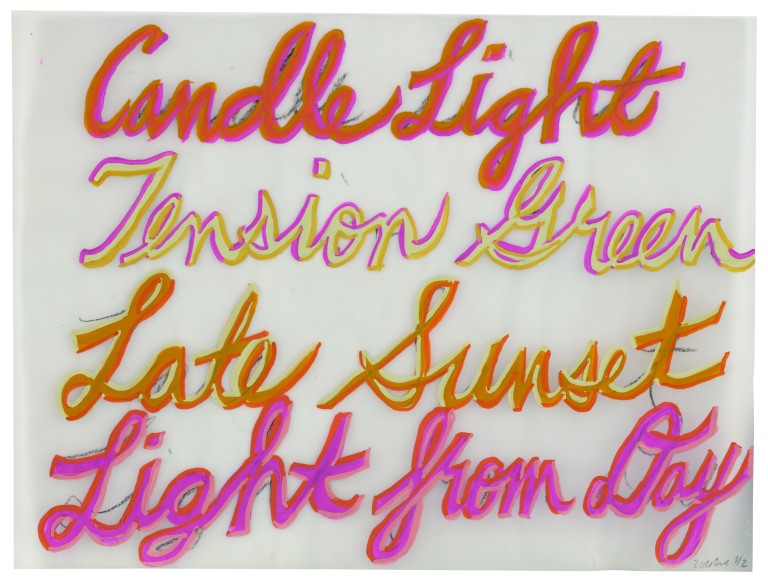 Candle Light
Tension Green
Late Sunset
Light from Day
1/2